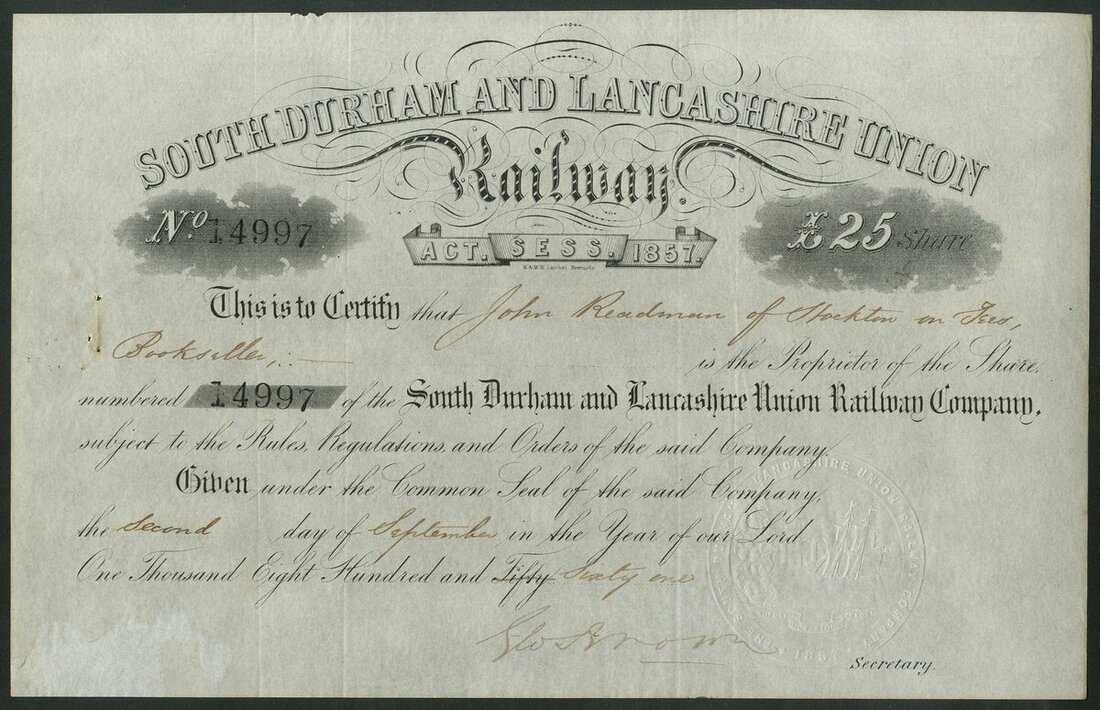 SOUTH DURHAM AND LANCASHIRE UNION
Railway.
No. 14997
ACT. SESS. 1857.
£25 Share
M & M.W. Lambert, Newcastle
This is to Certify that John Readman of Stockton on Tees,
Bookseller, is the Proprietor of the Share
numbered 14997 of the South Durham and Lancashire Union Railway Company,
subject to the Rules, Regulations, and Orders of the said Company.
Given under the Common Seal of the said Company,
the Second day of September in the Year of our Lord
One Thousand Eight Hundred and Fifty Sixty one
Geo Brown
Secretary.
LANCASHIRE UNION RAILWAY COMPANY